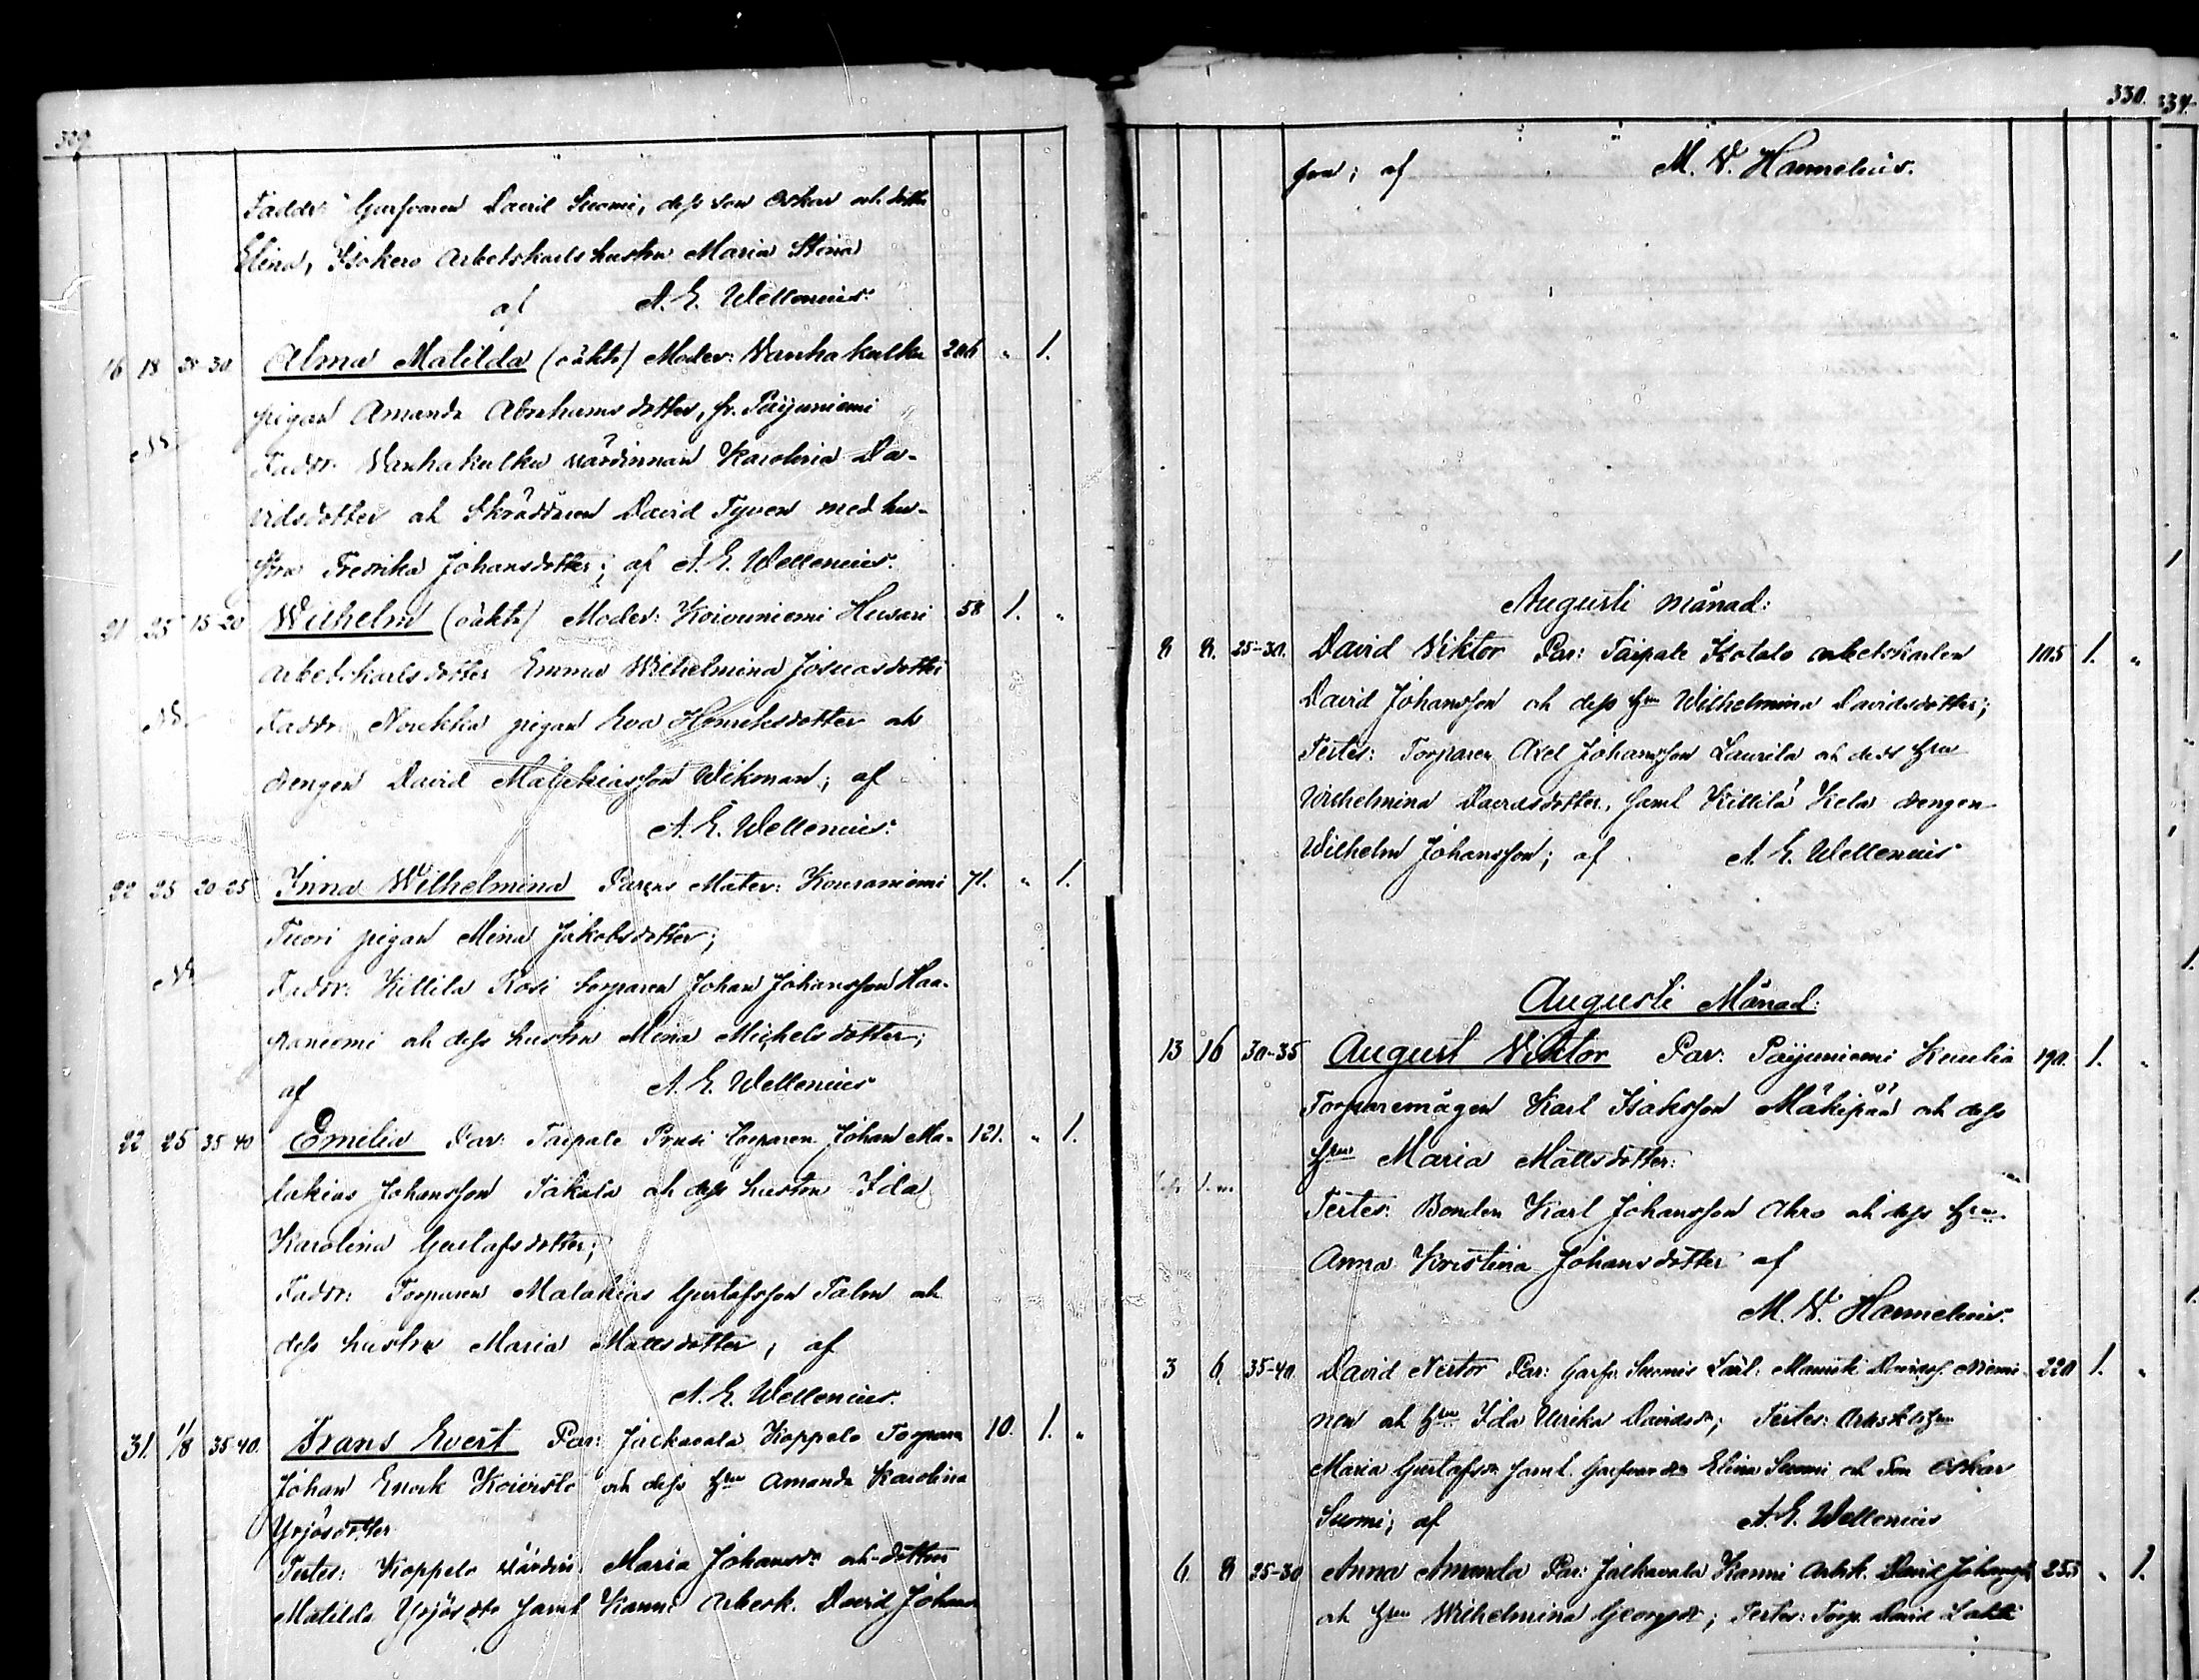 329.
Faddr: David Suomi, dess son Oskar och dotter
Elina, Isokero Arbetskarls hustru Maria Stina
af A. E. Wellenius.
16 18 25-30 Alma Matilda (oäkta) Moder: Vanhakulku 206 " 1.
pigan Amanda Abrahamsdotter, fr. Päijuniemi
Faddr: Vanhakulku värdinnan Karolina Da-
vidsdotter och Skräddaren David Tyven med hu-
stru Fredrika Johansdotter; af A. E. Wellenius.
21 25 15-20 Wilhelm (oäkta) Moder: Koivuniemi Husari 58 1. "
arbetskarlsdotter Emma Wilhelmina Josuasdotter
Faddr: pigan Eva Henriksdotter och
drengen David Malakiasson Wikman; af
A. E. Wellenius.
22 25 20-25 Inna Wilhelmina Parens Mater: Kouraniemi 71. " 1.
Tuori pigan Mina Jakobsdotter;
Faddr: Killilä Rosi torparen Johan Johansson Haa-
raniemi och dess hustru Mina Michelsdotter;
af A. E. Wellenius
22 25 35-40 Emilia Par: Taipale Prusi torparen Johan Ma- 121. " 1.
lakias Johansson Takala och dess hustru Ida
Karolina Gustafsdotter;
Faddr: Torparen Malakias Gustafsson Talm och
dess hustru Maria Mattsdotter; af
A. E. Wellenius.
31. 1/8 35-40. Frans Evert Par: Jalkavala Koppelo Torparen 10. 1. "
Johan Enok Koivisto och dess Hru Amanda Karolina
Yrjösdotter
Testes: Koppelo värdin: Maria Johansdr och dottren
Matilda Yrjösdr samt Kanni Arbetsk. David Johans
330.
334.
son; af M. W. Hannelius.
Augusti månad:
8 8. 25-30. David Viktor Par: Taipale Isotalo arbetskarlen 105 1. "
David Johansson och dess Hru Wilhelmina Davidsdotter;
Testes: Torparen Axel Johansson Laurila och dess Hru
Wilhelmina Davidsdotter, samt Killilä Kela drengen
Wilhelm Johansson; af A. E. Wellenius
Augusti Månad:
13 16 30-35 August Viktor Par: Päijuniemi Knulia 190. 1. "
Torparemågen Karl Isaksson Mäkipää och dess
Hru Maria Mattsdotter:
Testes: Bonden Karl Johansson Ahro och dess Hru
Anna Kristina Johansdotter af
M. W. Hannelius.
3 6 35-40 David Nestor Par: Suomis Manuel Davidss. Niemi- 220 1. "
nen och Hru Ida Ulrika Davidsdr; Testes:
Maria Gustafsdr samt Elina Suomi och Son Oskar
Suomi; af A. E. Wellenius
6 8 25-30 Anna Amanda Par: Jalkavala Kanni Arbk. David Johanss. 253 " 1.
och Hru Wilhelmina Georgsdr; Testes: Torp. David